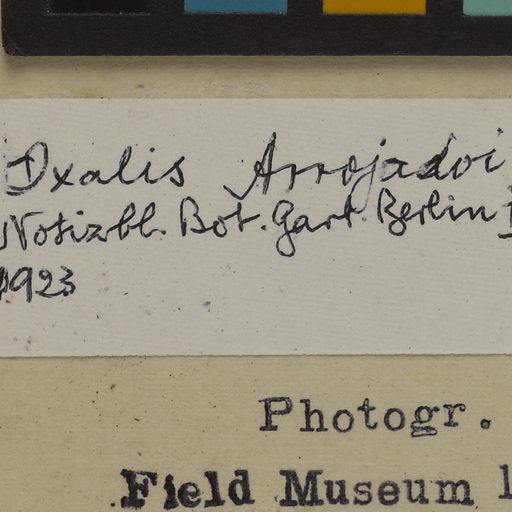 Oxalis Arrojadoi
Notizbl. Bot. Gart. Berlin
1923
Photogr.
Field Museum